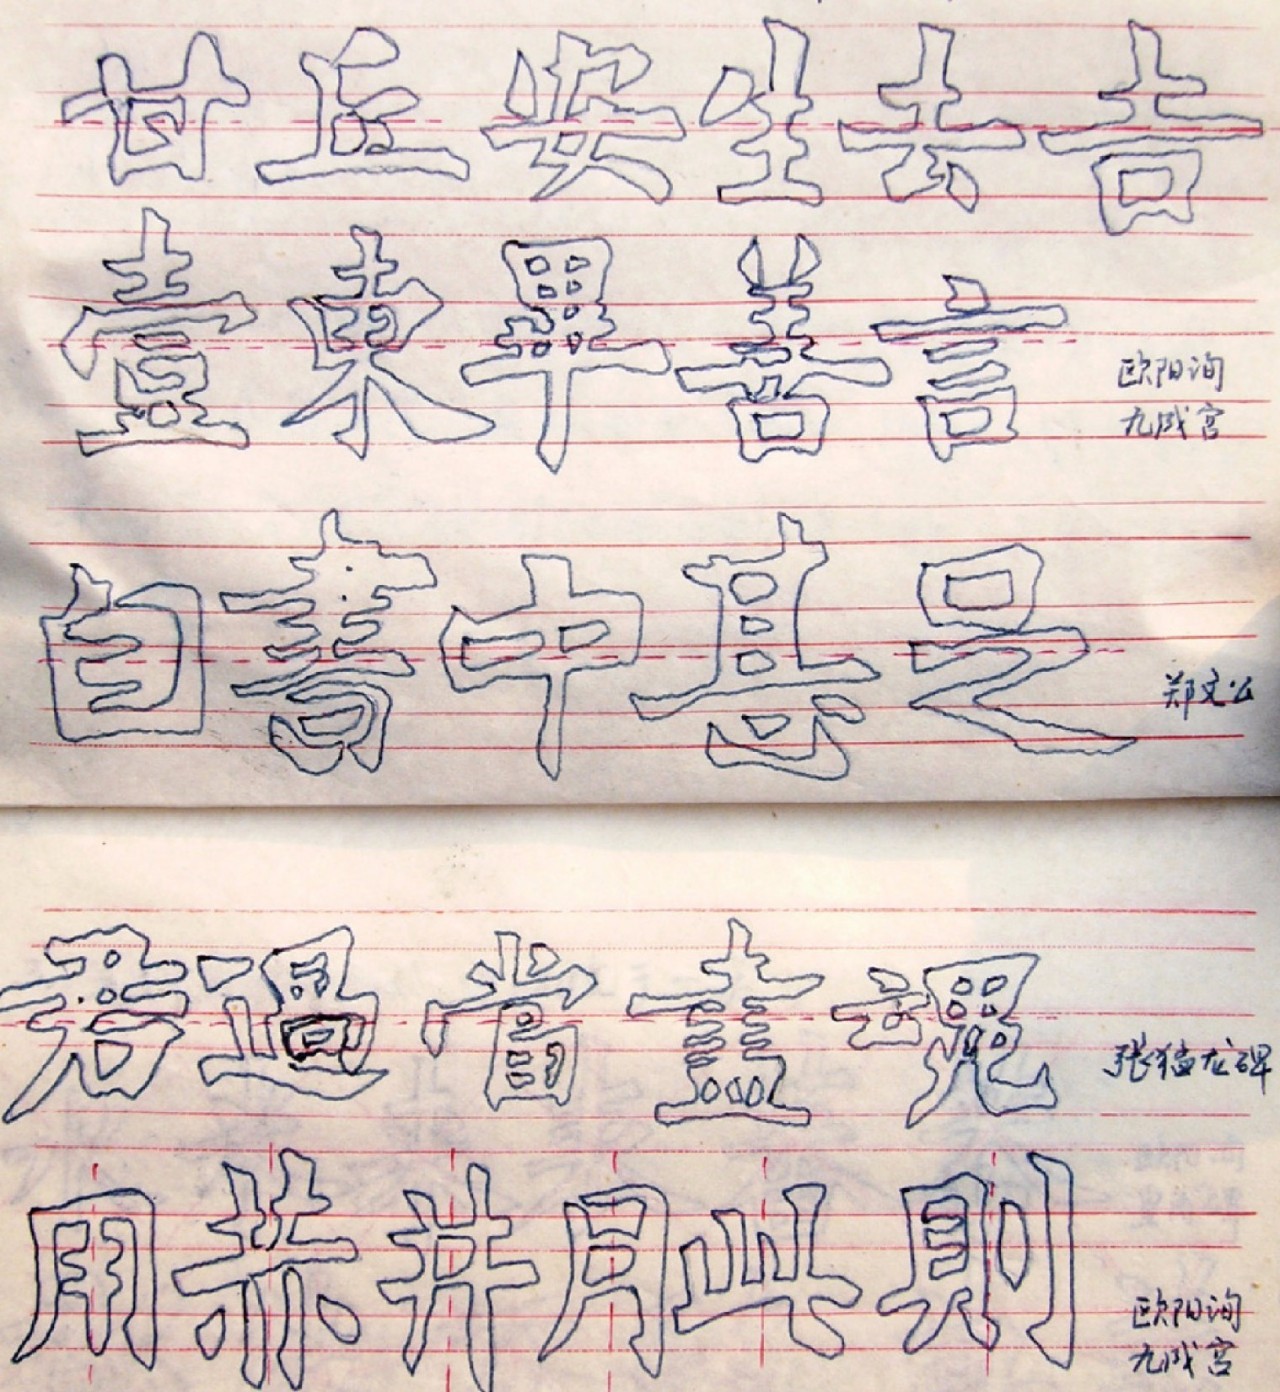 甘丘安生去吉
東畢善言 欧阳询
九成宫
自書中 郑文公
君過當盡魂 张猛龙碑
用赤井月此則 欧阳询
九成宫